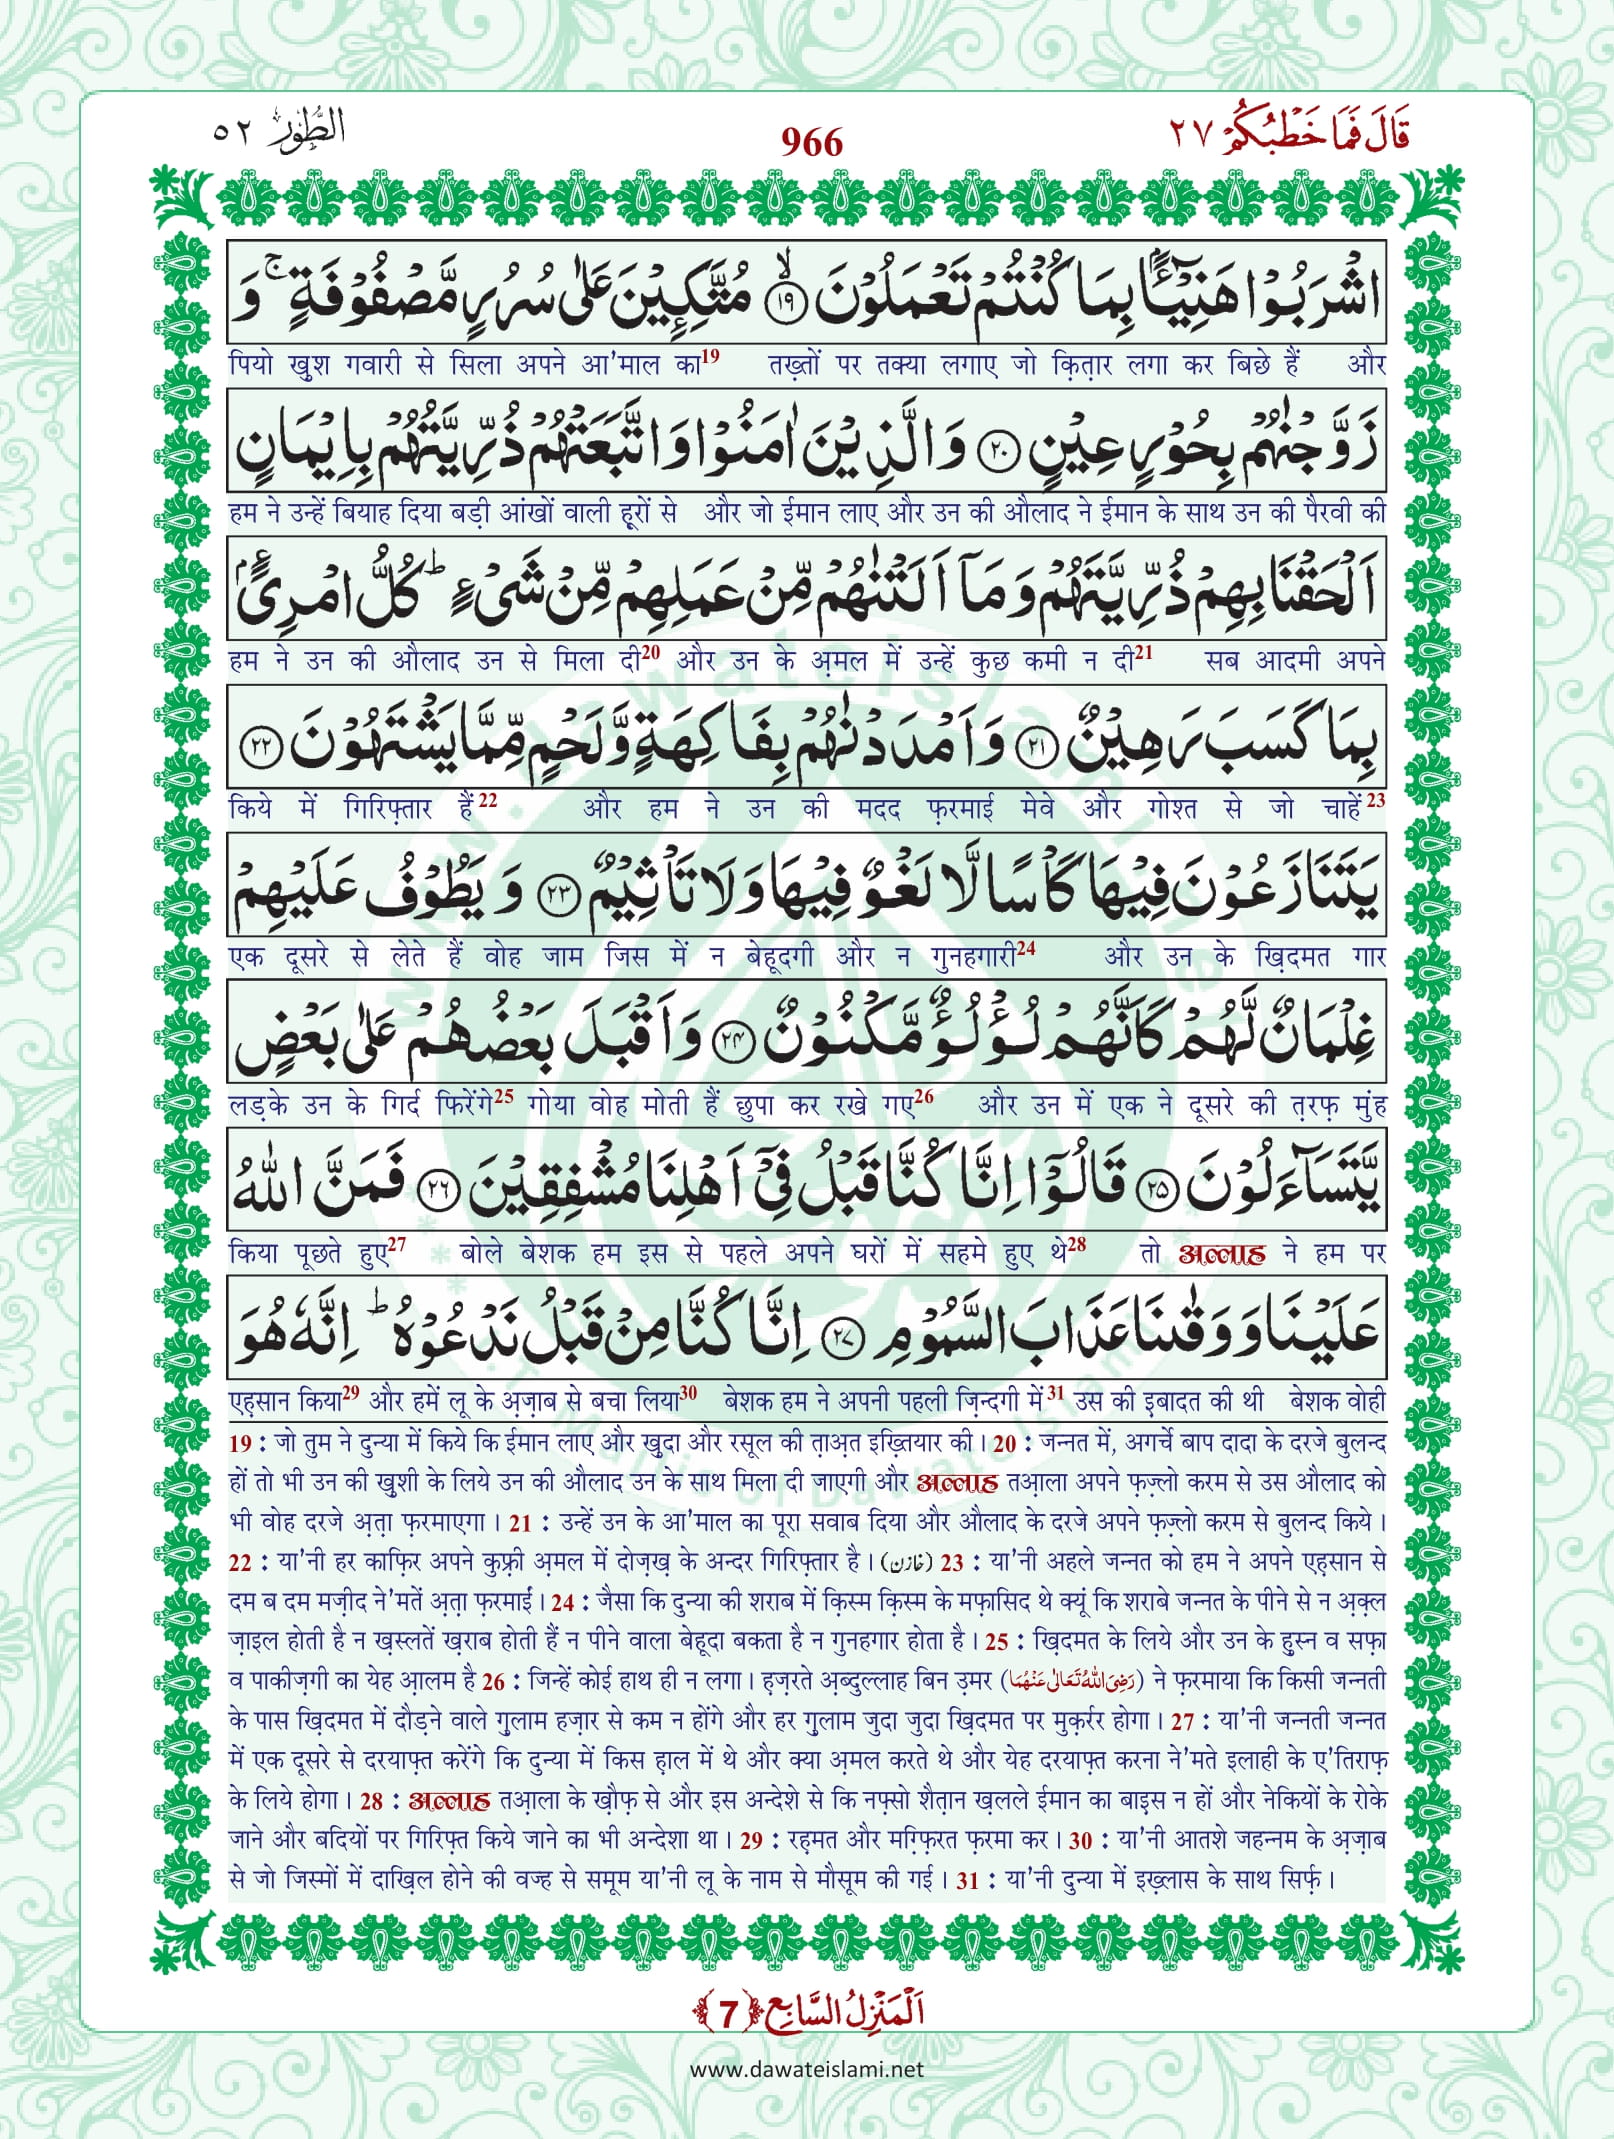 قَالَ فَمَا خَطْبُكُمْ ٢٧
966
الطُّوْر ٥٢
اشْرَبُوْا هَنِيْٓـًٔۢا بِمَا كُنْتُمْ تَعْمَلُوْنَ ۙ﴿۱۹﴾ مُتَّكِـِٕیْنَ عَلٰى سُرُرٍ مَّصْفُوْفَةٍ ۚ وَ
पियो ख़ुश गवारी से सिला अपने आ'माल का19 तख़्तों पर तक्या लगाए जो क़ित़ार लगा कर बिछे हैं और
زَوَّجْنٰهُمْ بِحُوْرٍ عِیْنٍ ﴿۲۰﴾ وَ الَّذِیْنَ اٰمَنُوْا وَ اتَّبَعَتْهُمْ ذُرِّیَّتُهُمْ بِاِیْمَانٍ
हम ने उन्हें बियाह दिया बड़ी आंखों वाली हूरों से और जो ईमान लाए और उन की औलाद ने ईमान के साथ उन की पैरवी की
اَلْحَقْنَا بِهِمْ ذُرِّیَّتَهُمْ وَ مَاۤ اَلَتْنٰهُمْ مِّنْ عَمَلِهِمْ مِّنْ شَیْءٍ ؕ كُلُّ امْرِئٍۭ
हम ने उन की औलाद उन से मिला दी20 और उन के अ़मल में उन्हें कुछ कमी न दी21 सब आदमी अपने
بِمَا كَسَبَ رَهِیْنٌ ﴿۲۱﴾ وَ اَمْدَدْنٰهُمْ بِفَاكِهَةٍ وَّ لَحْمٍ مِّمَّا یَشْتَهُوْنَ ﴿۲۲﴾
किये में गिरिफ़्तार हैं22 और हम ने उन की मदद फ़रमाई मेवे और गोश्त से जो चाहें23
یَتَنَازَعُوْنَ فِیْهَا كَاْسًا لَّا لَغْوٌ فِیْهَا وَ لَا تَاْثِیْمٌ ﴿۲۳﴾ وَ یَطُوْفُ عَلَیْهِمْ
एक दूसरे से लेते हैं वोह जाम जिस में न बेहूदगी और न गुनहगारी24 और उन के ख़िदमत गार
غِلْمَانٌ لَّهُمْ كَاَنَّهُمْ لُؤْلُؤٌ مَّكْنُوْنٌ ﴿۲۴﴾ وَ اَقْبَلَ بَعْضُهُمْ عَلٰى بَعْضٍ
लड़के उन के गिर्द फिरेंगे25 गोया वोह मोती हैं छुपा कर रखे गए26 और उन में एक ने दूसरे की त़रफ़ मुंह
یَّتَسَآءَلُوْنَ ﴿۲۵﴾ قَالُوْۤا اِنَّا كُنَّا قَبْلُ فِیْۤ اَهْلِنَا مُشْفِقِیْنَ ﴿۲۶﴾ فَمَنَّ اللّٰهُ
किया पूछते हुए27 बोले बेशक हम इस से पहले अपने घरों में सहमे हुए थे28 तो अल्लाह ने हम पर
عَلَیْنَا وَ وَقٰىنَا عَذَابَ السَّمُوْمِ ﴿۲۷﴾ اِنَّا كُنَّا مِنْ قَبْلُ نَدْعُوْهُ ؕ اِنَّهٗ هُوَ
एहसान किया29 और हमें लू के अ़ज़ाब से बचा लिया30 बेशक हम ने अपनी पहली ज़िन्दगी में31 उस की इबादत की थी बेशक वोही
19 : जो तुम ने दुन्या में किये कि ईमान लाए और ख़ुदा और रसूल की त़ाअ़त इख़्तियार की। 20 : जन्नत में, अगर्चे बाप दादा के दरजे बुलन्द
हों तो भी उन की ख़ुशी के लिये उन की औलाद उन के साथ मिला दी जाएगी और अल्लाह तआ़ला अपने फ़ज़्लो करम से उस औलाद को
भी वोह दरजे अ़त़ा फ़रमाएगा। 21 : उन्हें उन के आ'माल का पूरा सवाब दिया और औलाद के दरजे अपने फ़ज़्लो करम से बुलन्द किये।
22 : या'नी हर काफ़िर अपने कुफ़्री अ़मल में दोज़ख़ के अन्दर गिरिफ़्तार है। (خازن) 23 : या'नी अहले जन्नत को हम ने अपने एह़सान से
दम ब दम मज़ीद ने'मतें अ़त़ा फ़रमाईं। 24 : जैसा कि दुन्या की शराब में क़िस्म क़िस्म के मफ़ासिद थे क्यूं कि शराबे जन्नत के पीने से न अ़क़्ल
ज़ाइल होती है न ख़स्लतें ख़राब होती हैं न पीने वाला बेहूदा बकता है न गुनहगार होता है। 25 : ख़िदमत के लिये और उन के हुस्न व सफ़ा
व पाकीज़गी का येह आ़लम है 26 : जिन्हें कोई हाथ ही न लगा। ह़ज़रते अ़ब्दुल्लाह बिन उ़मर (رَضِیَ اللّٰهُ تَعَالٰی عَنْهُمَا) ने फ़रमाया कि किसी जन्नती
के पास ख़िदमत में दौड़ने वाले ग़ुलाम हज़ार से कम न होंगे और हर ग़ुलाम जुदा जुदा ख़िदमत पर मुक़र्रर होगा। 27 : या'नी जन्नती जन्नत
में एक दूसरे से दरयाफ़्त करेंगे कि दुन्या में किस ह़ाल में थे और क्या अ़मल करते थे और येह दरयाफ़्त करना ने'मते इलाही के ए'तिराफ़
के लिये होगा। 28 : अल्लाह तआ़ला के ख़ौफ़ से और इस अन्देशे से कि नफ़्सो शैत़ान ख़लले ईमान का बाइस न हों और नेकियों के रोके
जाने और बदियों पर गिरिफ़्त किये जाने का भी अन्देशा था। 29 : रह़मत और मग़्फ़िरत फ़रमा कर। 30 : या'नी आतशे जहन्नम के अ़ज़ाब
से जो जिस्मों में दाख़िल होने की वज्ह से समूम या'नी लू के नाम से मौसूम की गई। 31 : या'नी दुन्या में इख़्लास के साथ सिर्फ़।
اَلْمَنْزِلُ السَّابِع ﴿7﴾
www.dawateislami.net